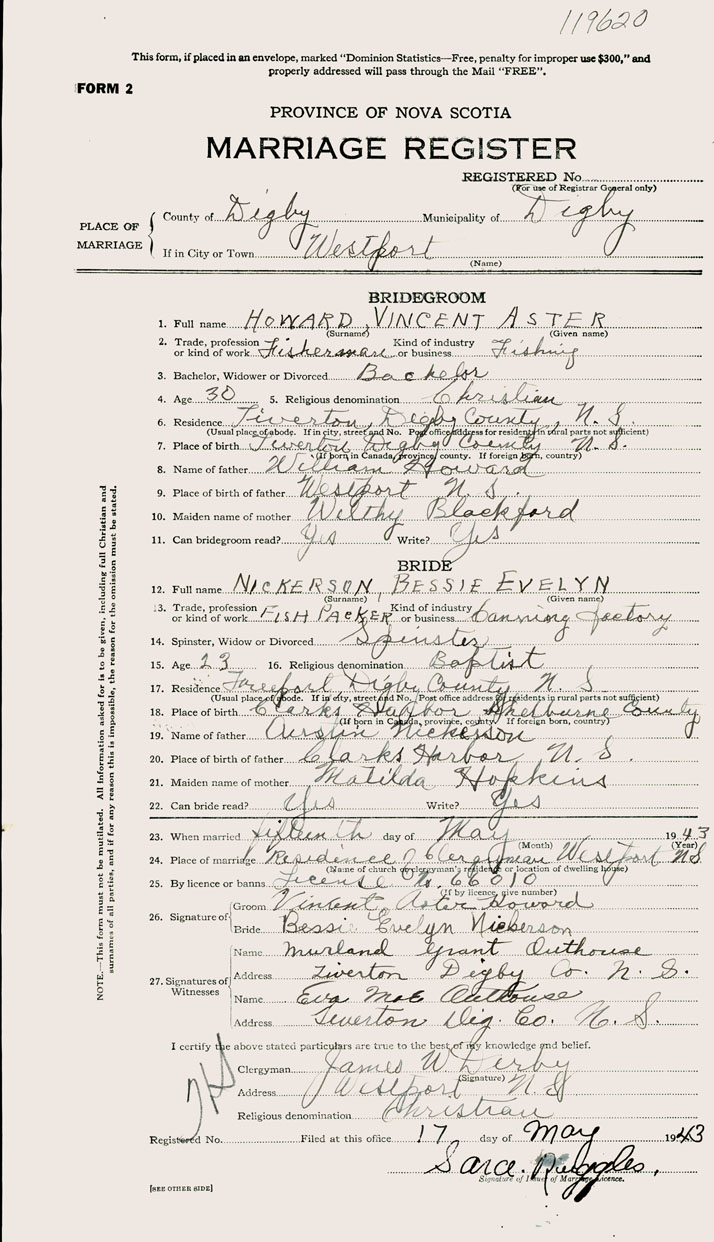 119620
This form, if placed in an envelope, marked "Dominion Statistics—Free, penalty for improper use $300," and
properly addressed will pass through the Mail "FREE".
FORM 2
PROVINCE OF NOVA SCOTIA
MARRIAGE REGISTER
REGISTERED No.
(For use of Registrar General only)
PLACE OF MARRIAGE
County of Digby Municipality of Digby
If in City or Town Westport
(Name)
BRIDEGROOM
1. Full name HOWARD, VINCENT ASTER
(Surname) (Given name)
2. Trade, profession or kind of work Fisherman Kind of industry or business Fishing
3. Bachelor, Widower or Divorced Bachelor
4. Age 30 5. Religious denomination Christian
6. Residence Tiverton, Digby County, N. S.
(Usual place of abode. If in city, street and No. Post office address for residents in rural parts not sufficient)
7. Place of birth Tiverton Digby County N. S.
(If born in Canada, province, county. If foreign born, country)
8. Name of father William Howard
9. Place of birth of father Westport N. S.
10. Maiden name of mother Welthy Blackford
11. Can bridegroom read? Yes Write? Yes
BRIDE
12. Full name NICKERSON, BESSIE EVELYN
(Surname) (Given name)
13. Trade, profession or kind of work FISH PACKER Kind of industry or business Canning factory
14. Spinster, Widow or Divorced Spinster
15. Age 23 16. Religious denomination Baptist
17. Residence Freeport, Digby County N. S
(Usual place of abode. If in city, street and No. Post office address for residents in rural parts not sufficient)
18. Place of birth Clarks Harbor Shelburne County
(If born in Canada, province, county. If foreign born, country)
19. Name of father Austin Nickerson
20. Place of birth of father Clarks Harbor N. S.
21. Maiden name of mother Matilda Hopkins
22. Can bride read? Yes Write? Yes
23. When married fifteenth day of May 1943
(Month) (Year)
24. Place of marriage Residence of Clergyman Westport N.S.
(Name of church or clergyman's residence or location of dwelling house)
25. By licence or banns License No. 66010
(If by licence, give number)
26. Signature of
Groom Vincent Aster Howard
Bride Bessie Evelyn Nickerson
27. Signatures of Witnesses
Name Murland Grant Outhouse
Address Tiverton Digby Co. N. S.
Name Eva Mae Outhouse
Address Tiverton Dig. Co. N. S.
I certify the above stated particulars are true to the best of my knowledge and belief.
Clergyman James W Derby
(Signature)
Address Westport N. S
Religious denomination Christian
Registered No. Filed at this office 17 day of May 1943
Sara. Ruggles.
Signature of Issuer of Marriage Licence.
[SEE OTHER SIDE]
NOTE.—This form must not be mutilated. All information asked for is to be given, including full Christian and
surnames of all parties, and if for any reason this is impossible, the reason for the omission must be stated.